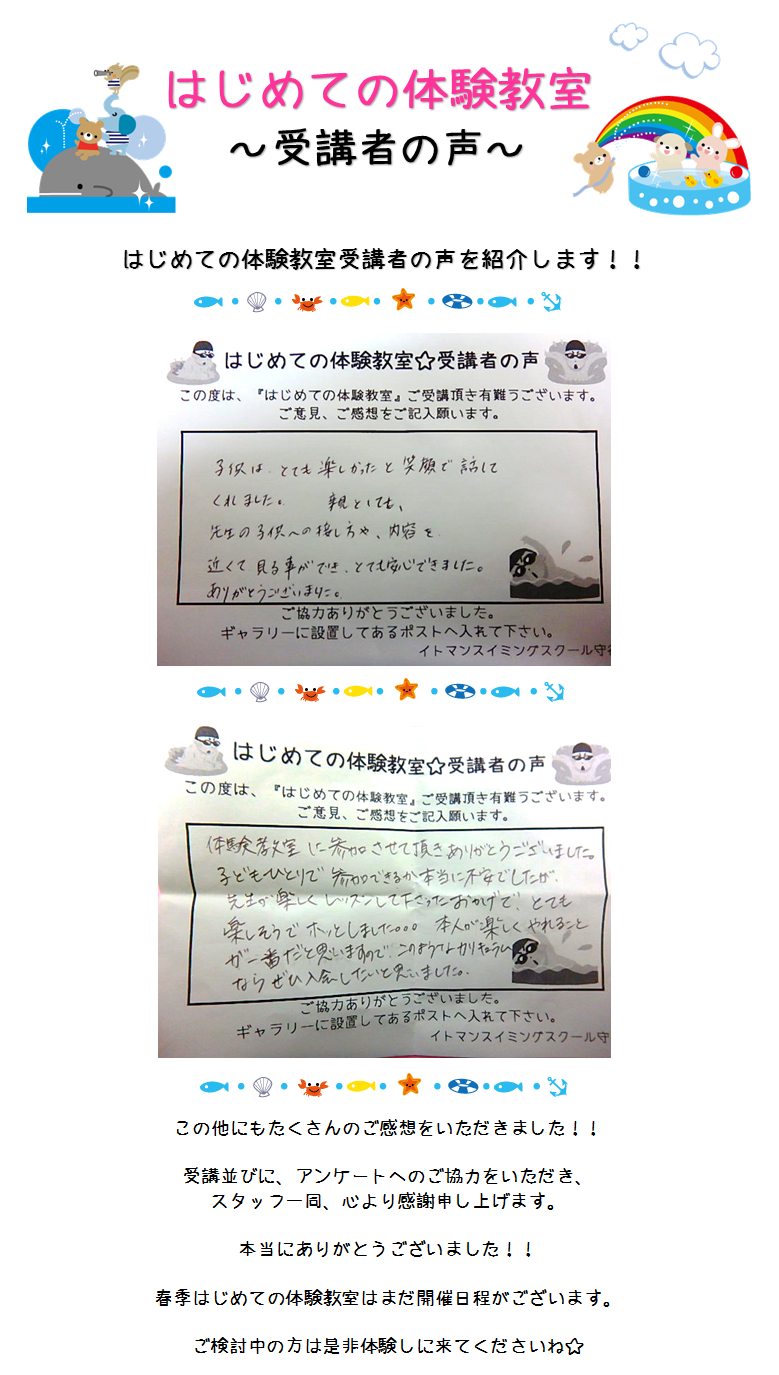 はじめての体験教室
～受講者の声～
はじめての体験教室受講者の声を紹介します！！
はじめての体験教室☆受講者の声
この度は、『はじめての体験教室』ご受講頂き有難うございます。
ご意見、ご感想をご記入願います。
子供は、とても楽しかったと笑顔で話して
くれました。 親としても、
先生の子供への接し方や、内容を
近くて見る事ができ、とても安心できました。
ありがとうございました。
ご協力ありがとうございました。
ギャラリーに設置してあるポストへ入れて下さい。
イトマンスイミングスクール守
はじめての体験教室☆受講者の声
この度は、『はじめての体験教室』ご受講頂き有難うございます。
ご意見、ご感想をご記入願います。
体験教室に参加させて頂きありがとうございました。
子どもひとりで参加できるか本当に不安でしたが、
先生が楽しくレッスンして下さったおかげで、とても
楽しそうでホッとしました。。。 本人が楽しくやれること
が一番だと思いますので、このようなカリキュラム
ならぜひ入会したいと思いました。
ご協力ありがとうございました。
ギャラリーに設置してあるポストへ入れて下さい。
イトマンスイミングスクール守
この他にもたくさんのご感想をいただきました！！
受講並びに、アンケートへのご協力をいただき、
スタッフ一同、心より感謝申し上げます。
本当にありがとうございました！！
春季はじめての体験教室はまだ開催日程がございます。
ご検討中の方は是非体験しに来てくださいね☆